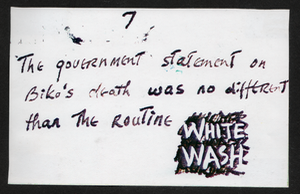 7
The government statement on
Biko's death was no different
than the routine
WHITE
WASH